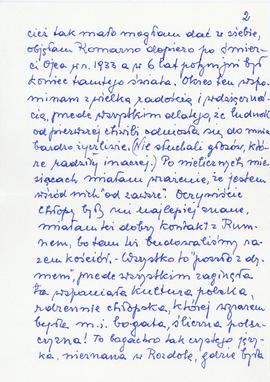 2
cież tak mało mogłam dać z siebie,
objęłam Komarno dopiero po śmier-
ci Ojca w r. 1933 a w 6 lat potem był
koniec tamtego świata. Okres ten wspo-
minam z wielką radością i wdzięczno-
ścią, przede wszystkim dlatego, że ludność
od pierwszej chwili odniosła się do mnie
bardzo życzliwie. (Nie słuchali głosów, które
radziły inaczej.) Po nielicznych mie-
siącach miałam wrażenie, że jestem
wśród nich "od zawsze". Oczywiście
chłopy byli mi najlepiej znane,
miałam też dobry kontakt z Rum-
nem, bo tam też budowaliśmy ra-
zem kościół. - Wszystko to "poszło z dy-
mem", przede wszystkim zaginęła
ta wspaniała kultura polska,
rdzennie chłopska, której wyrazem
była m.i. bogata, śliczna polsz-
czyzna! To bogactwo tak czystego języ-
ka, nieznana w Rozdole, gdzie była